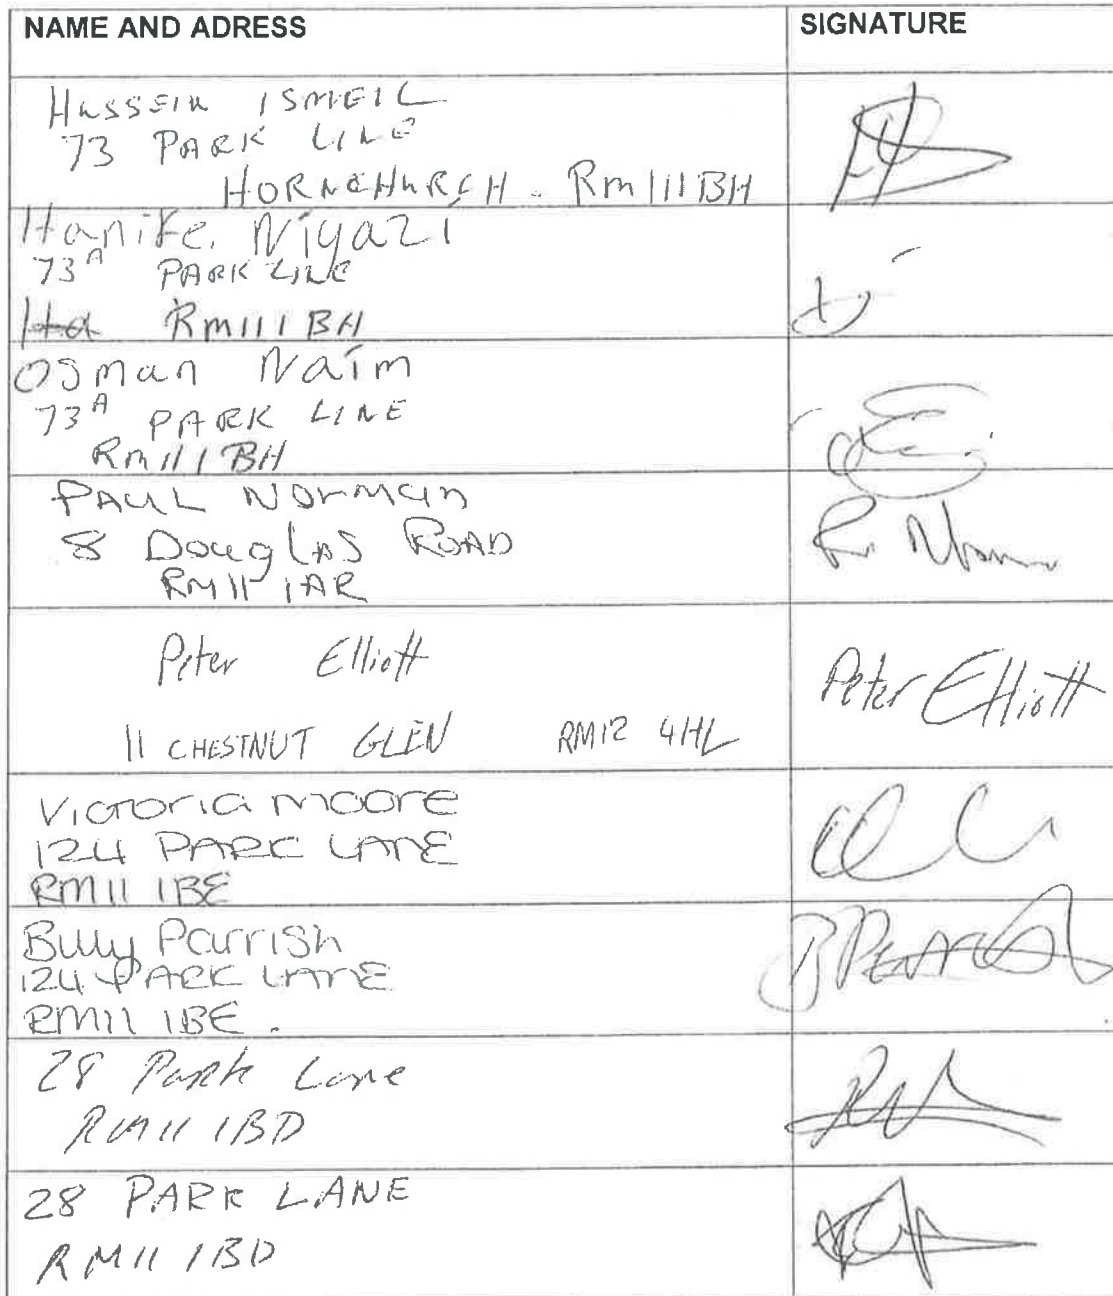 NAME AND ADRESS
SIGNATURE
HUSSEIN ISMEIL
73 PARK LINE
HORNCHURCH. RM11 1BH
Hanife. Niyazi
73A PARK LINE
Ha RM11 1BH
Osman Naim
73A PARK LINE
RM11 1BH
PAUL NORMAN
8 DOUGLAS ROAD
RM11 1AR
Peter Elliott
11 CHESTNUT GLEN RM12 4HL
Peter Elliott
VICTORIA MOORE
124 PARK LANE
RM11 1BE
Billy Parrish
124 PARK LANE
RM11 1BE.
28 Park Lane
RM11 1BD
28 PARK LANE
RM11 1BD